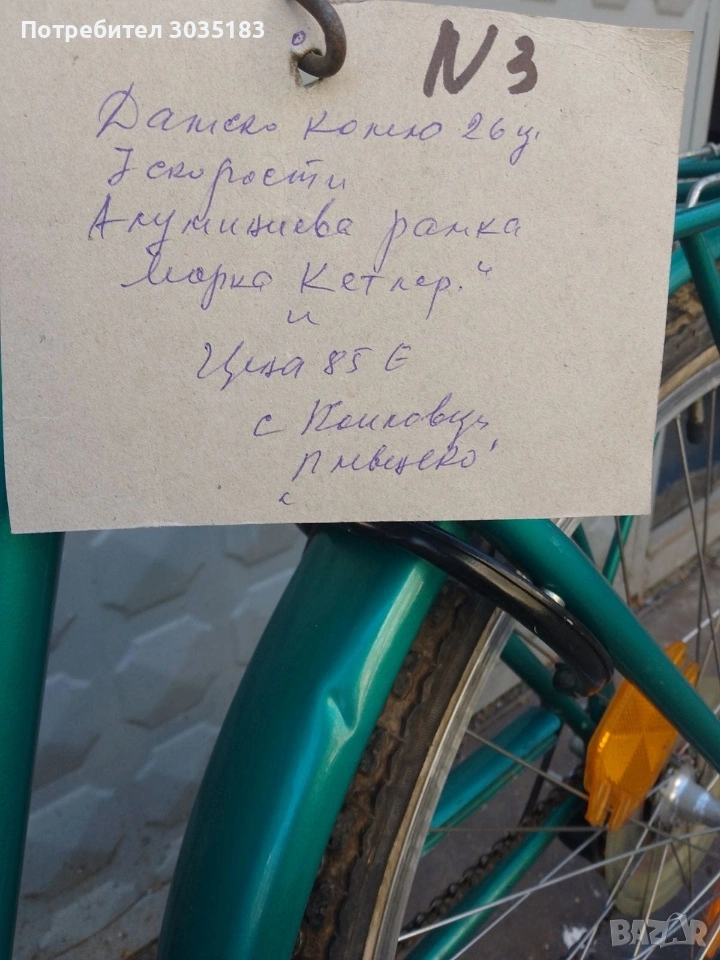 Потребител 3035183
N 3
Дамско колело 26 ц.
7 скорости
Алуминиева рамка
Марка Кетлер."
и
Цена 85 €
с Коиловци
Плевенско
BAZAR